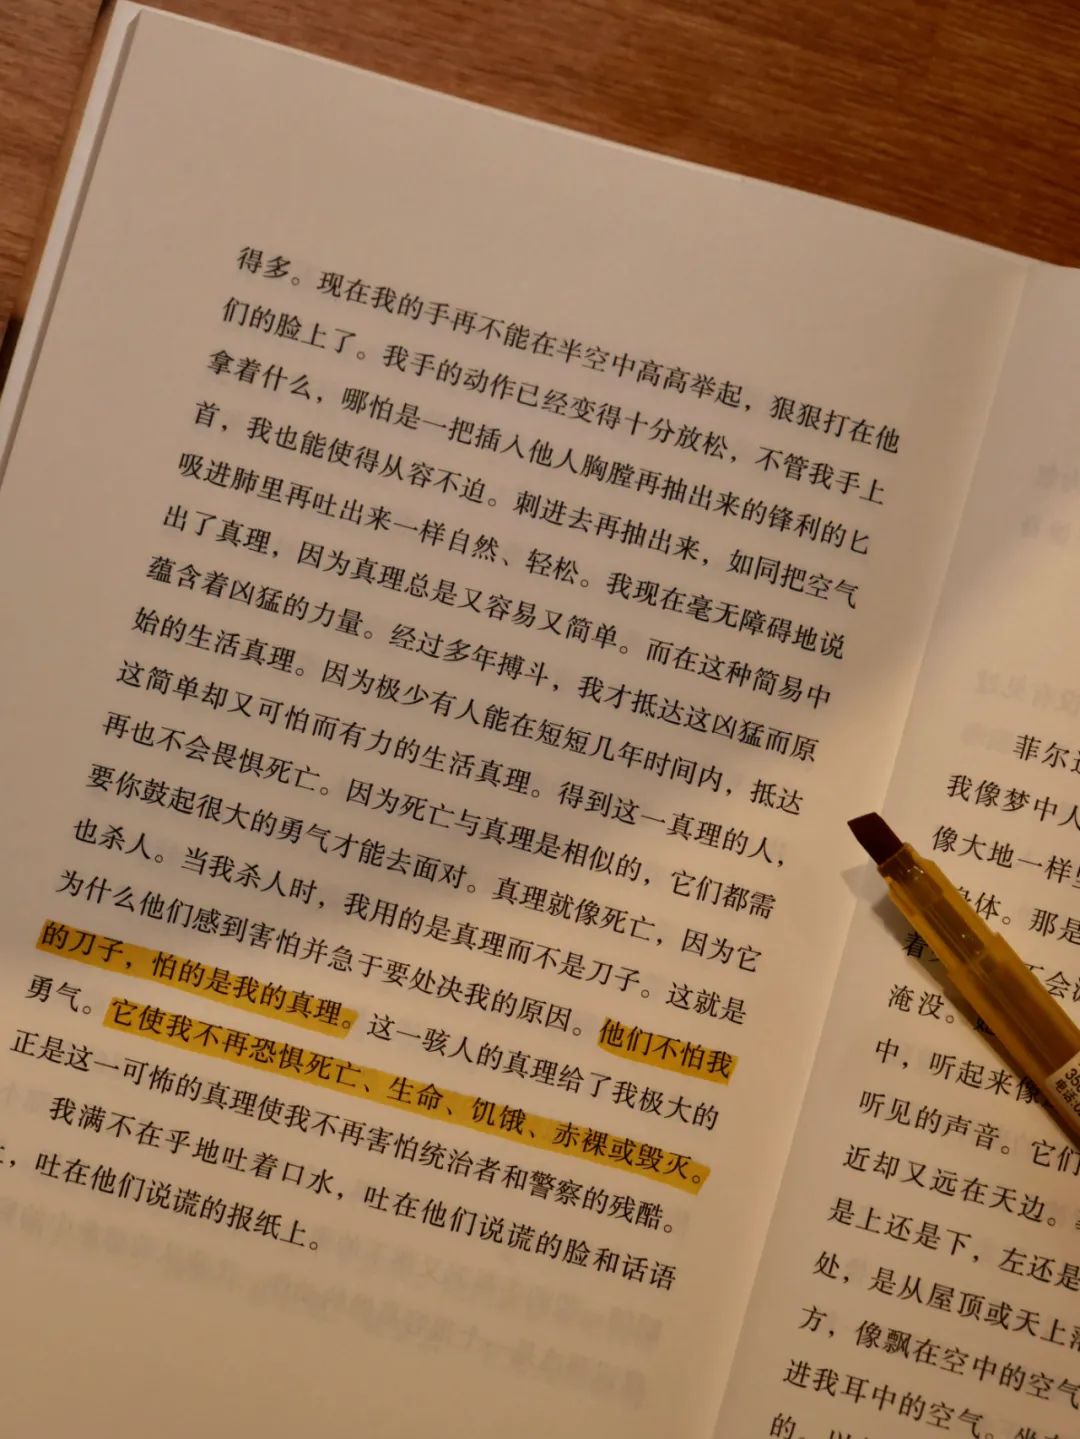 得多。现在我的手再不能在半空中高高举起，狠狠打在他
们的脸上了。我手的动作已经变得十分放松，不管我手上
拿着什么，哪怕是一把插入他人胸膛再抽出来的锋利的匕
首，我也能使得从容不迫。刺进去再抽出来，如同把空气
吸进肺里再吐出来一样自然、轻松。我现在毫无障碍地说
出了真理，因为真理总是又容易又简单。而在这种简易中
蕴含着凶猛的力量。经过多年搏斗，我才抵达这凶猛而原
始的生活真理。因为极少有人能在短短几年时间内，抵达
这简单却又可怕而有力的生活真理。得到这一真理的人，
再也不会畏惧死亡。因为死亡与真理是相似的，它们都需
要你鼓起很大的勇气才能去面对。真理就像死亡，因为它
也杀人。当我杀人时，我用的是真理而不是刀子。这就是
为什么他们感到害怕并急于要处决我的原因。他们不怕我
的刀子，怕的是我的真理。这一骇人的真理给了我极大的
勇气。它使我不再恐惧死亡、生命、饥饿、赤裸或毁灭。
正是这一可怖的真理使我不再害怕统治者和警察的残酷。
我满不在乎地吐着口水，吐在他们说谎的脸和话语
，吐在他们说谎的报纸上。
菲尔
我像梦中人
像大地一样
体。那是
着 会
淹没。
中，听起来像
听见的声音。它们
近却又远在天边。
是上还是下，左还是
处，是从屋顶或天上落
方，像飘在空中的空气
进我耳中的空气。
的。